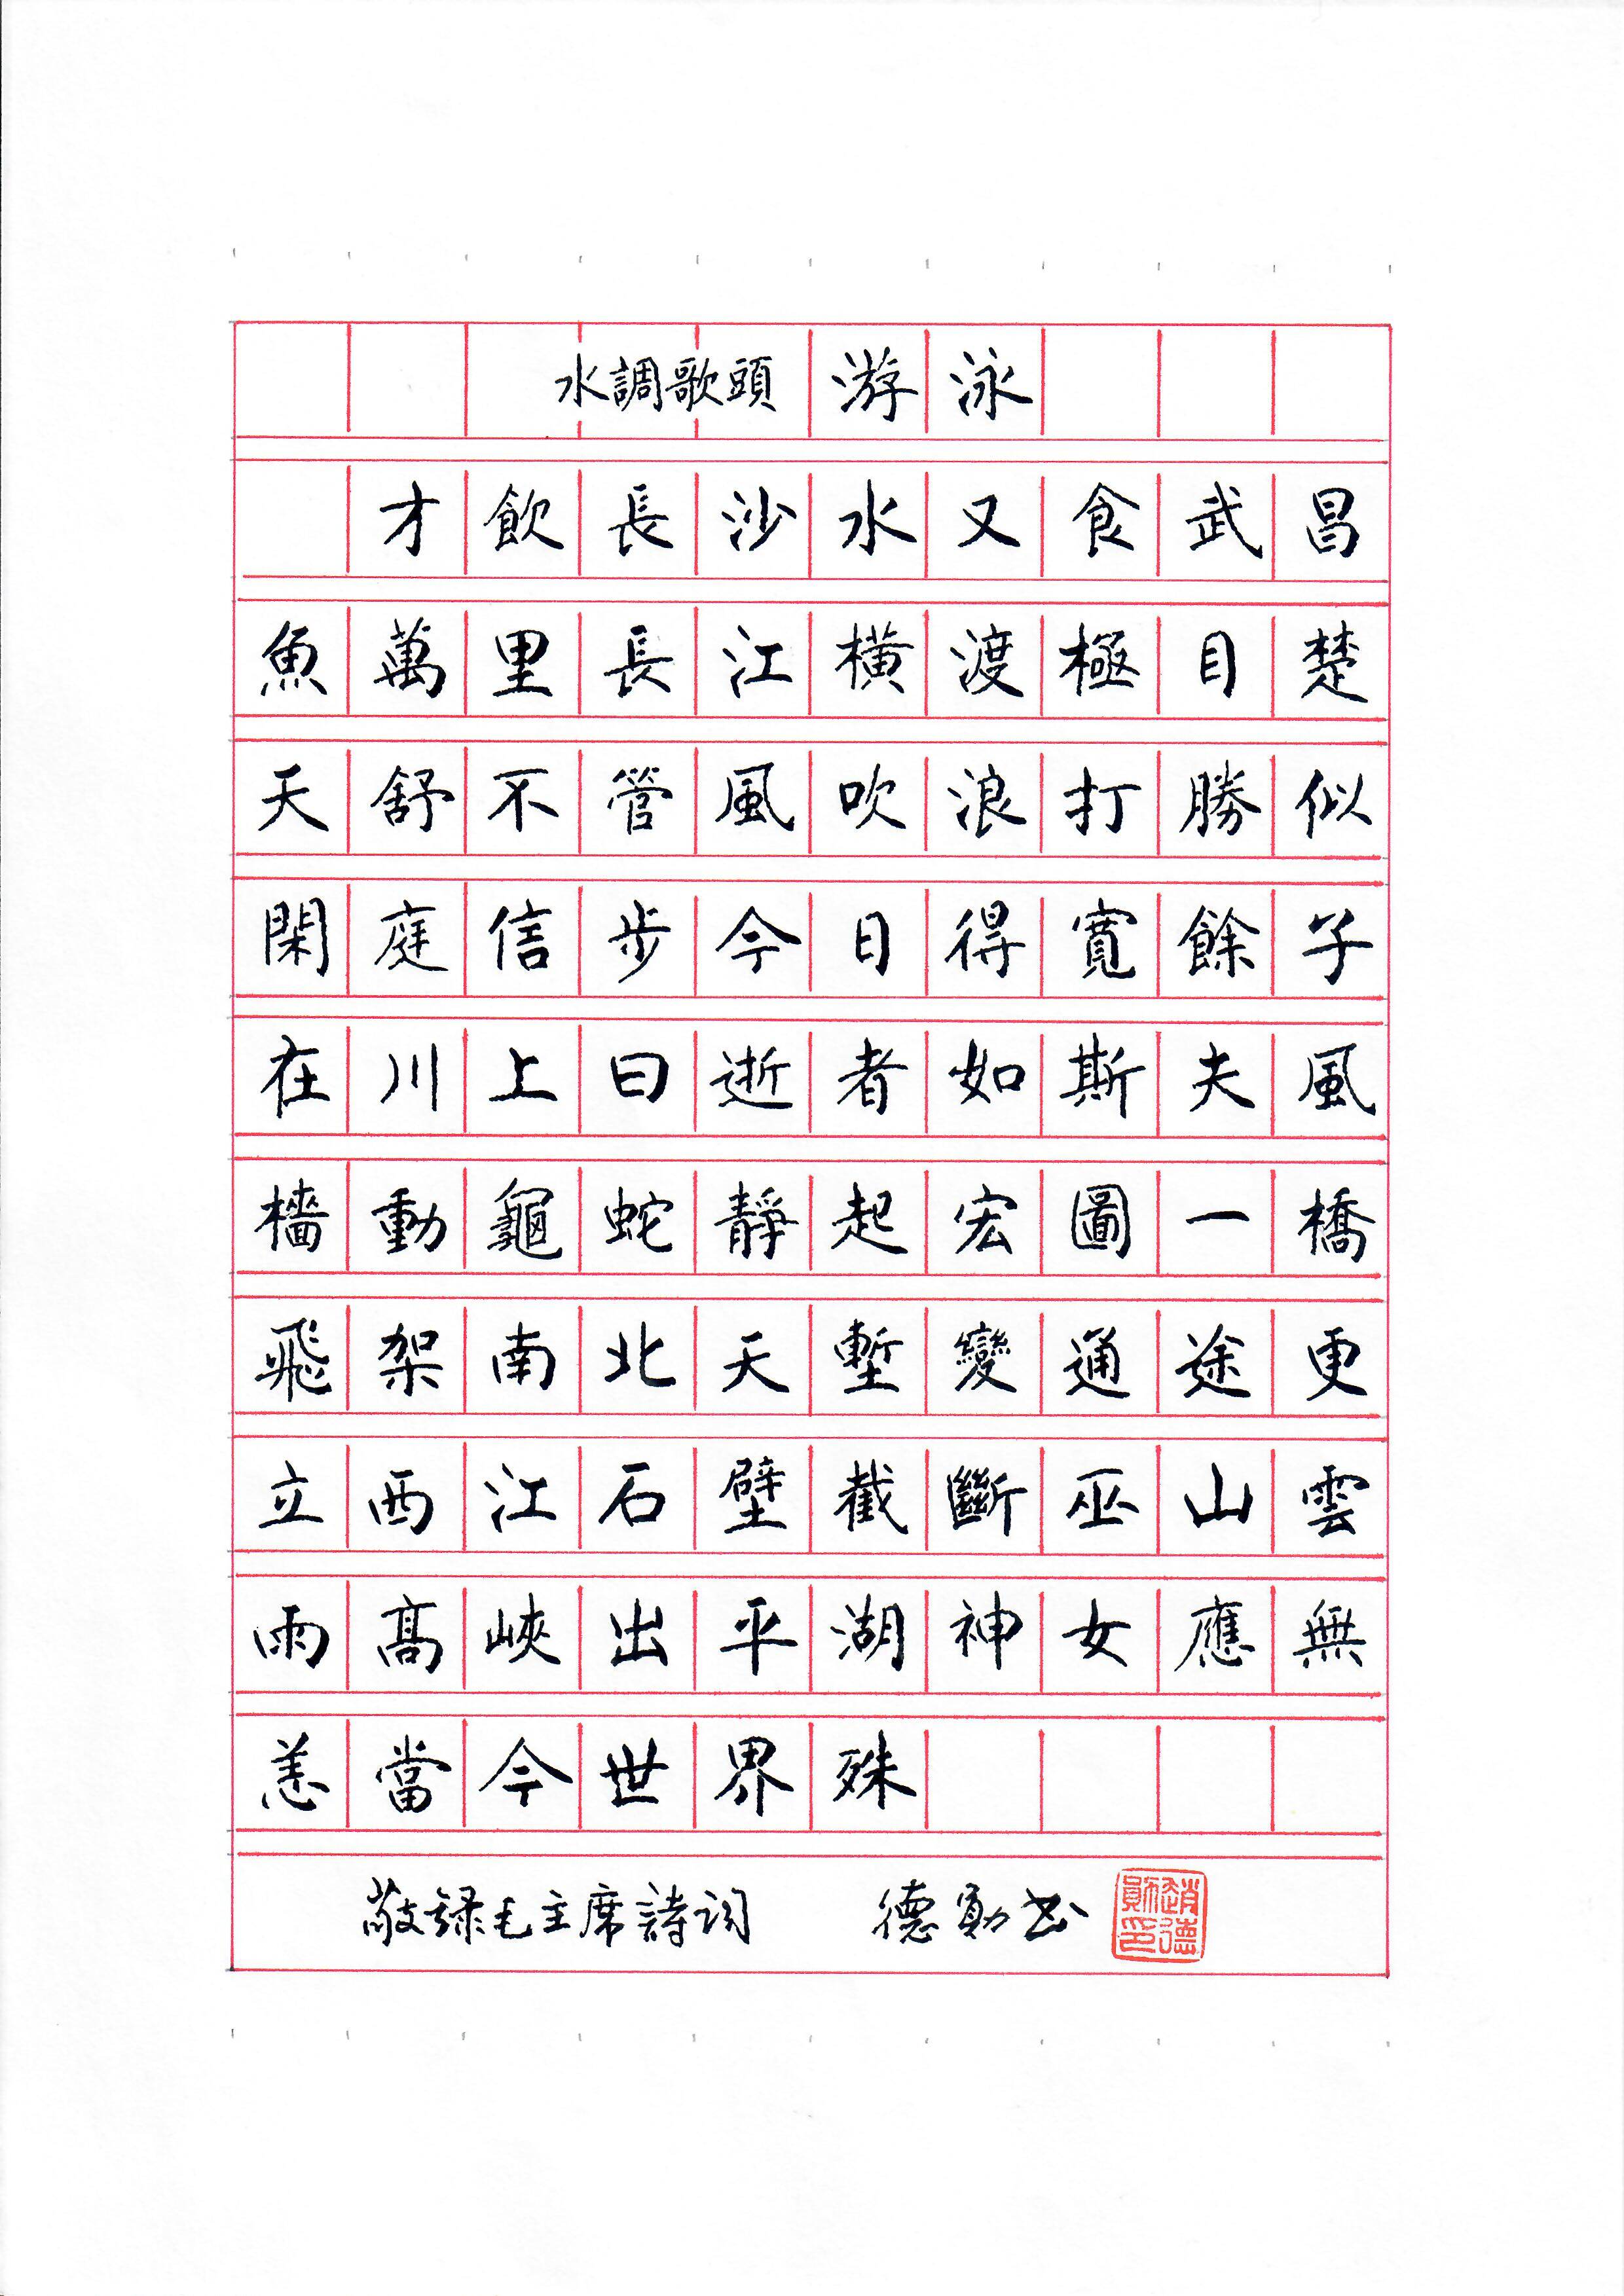 水調歌頭 游泳
才飲長沙水又食武昌
魚萬里長江橫渡極目楚
天舒不管風吹浪打勝似
閑庭信步今日得寬餘子
在川上曰逝者如斯夫風
檣動龜蛇靜起宏圖一橋
飛架南北天塹變通途更
立西江石壁截斷巫山雲
雨高峽出平湖神女應無
恙當今世界殊
敬録毛主席詩词 德勛书
趙德勛印